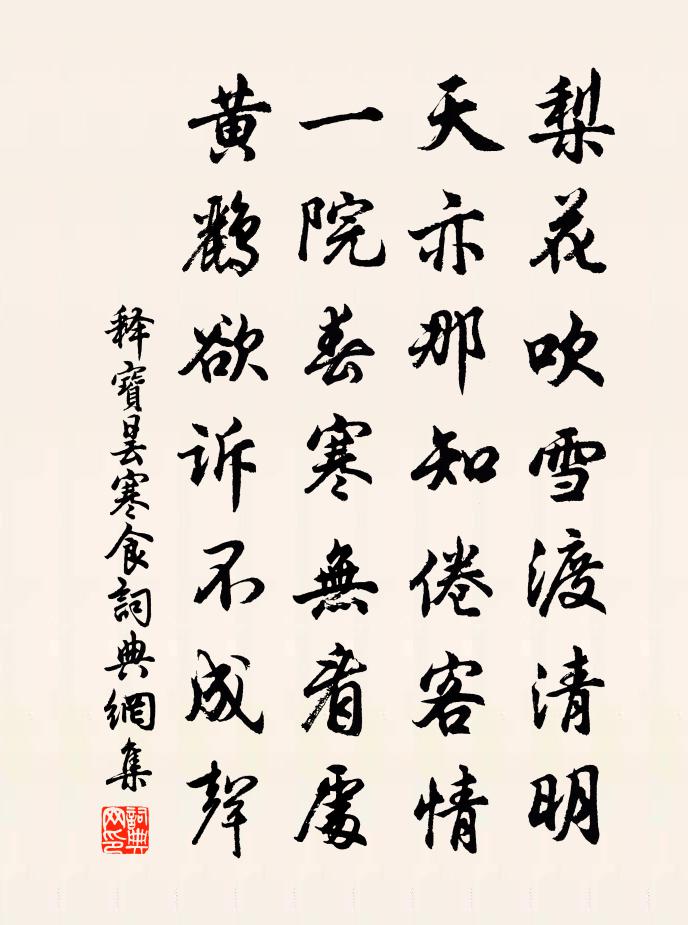 梨花吹雪渡清明
天亦那知倦客情
一院春寒無看處
黃鸝欲訴不成聲
释寶曇寒食詞典網集
詞典網印